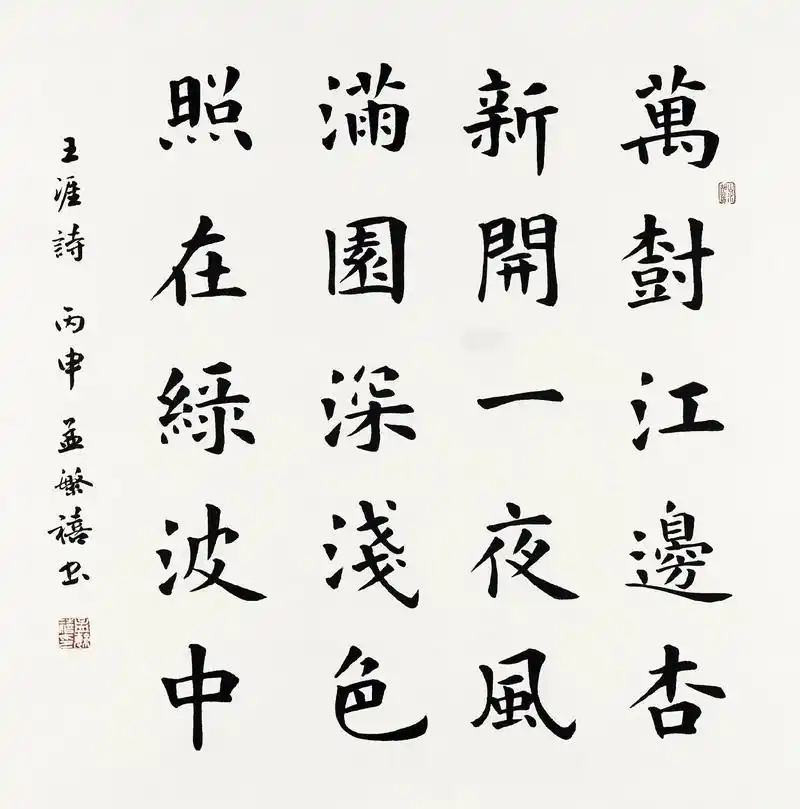 萬樹江邊杏
新開一夜風
滿園深淺色
照在綠波中
王涯詩 丙申 孟繁禧书